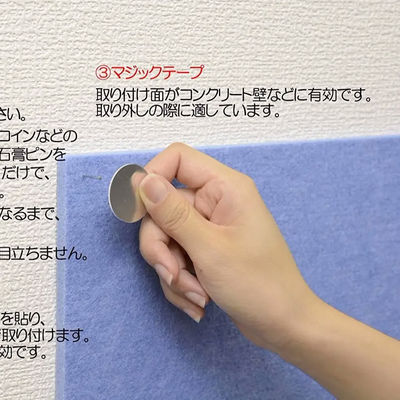 ③マジックテープ
取り付け面がコンクリート壁などに有効です。
取り外しの際に適しています。
さい。
コインなどの
石膏ピンを
だけで、
。
なるまで、
目立ちません。
を貼り、
取り付けます。
効です。